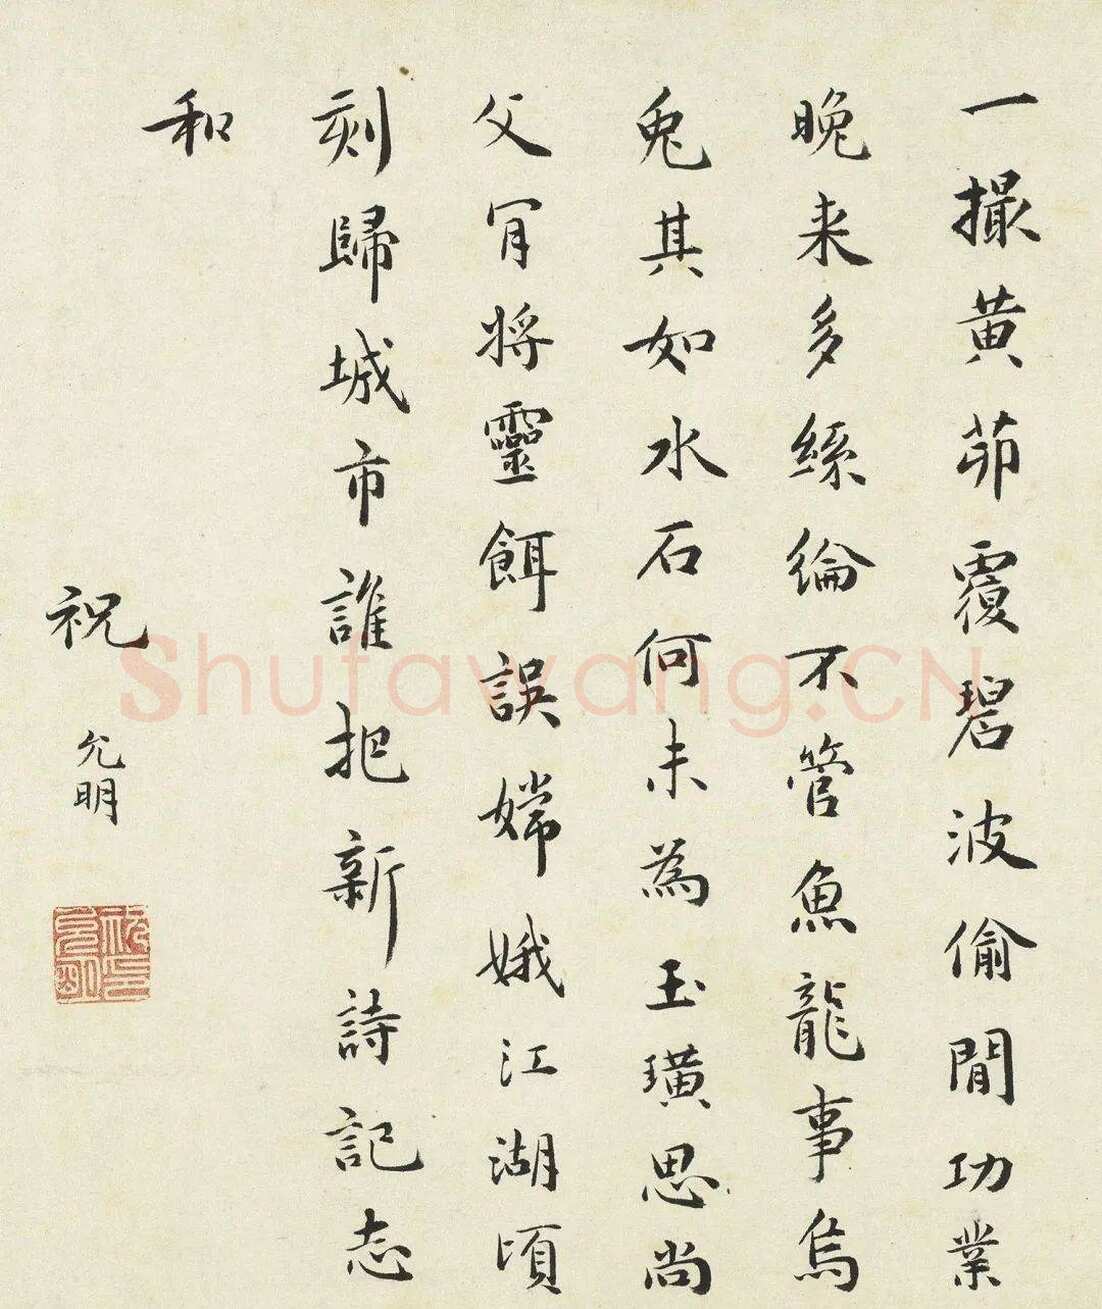 一撮黄茆覆碧波偷閒功業
晚来多絲綸不管魚龍事烏
兎其如水石何未為玉璜思尚
父肎將靈餌誤嫦娥江湖頃
刻歸城市誰把新詩記志
和
祝允明
祝允明
Shufawang.CN